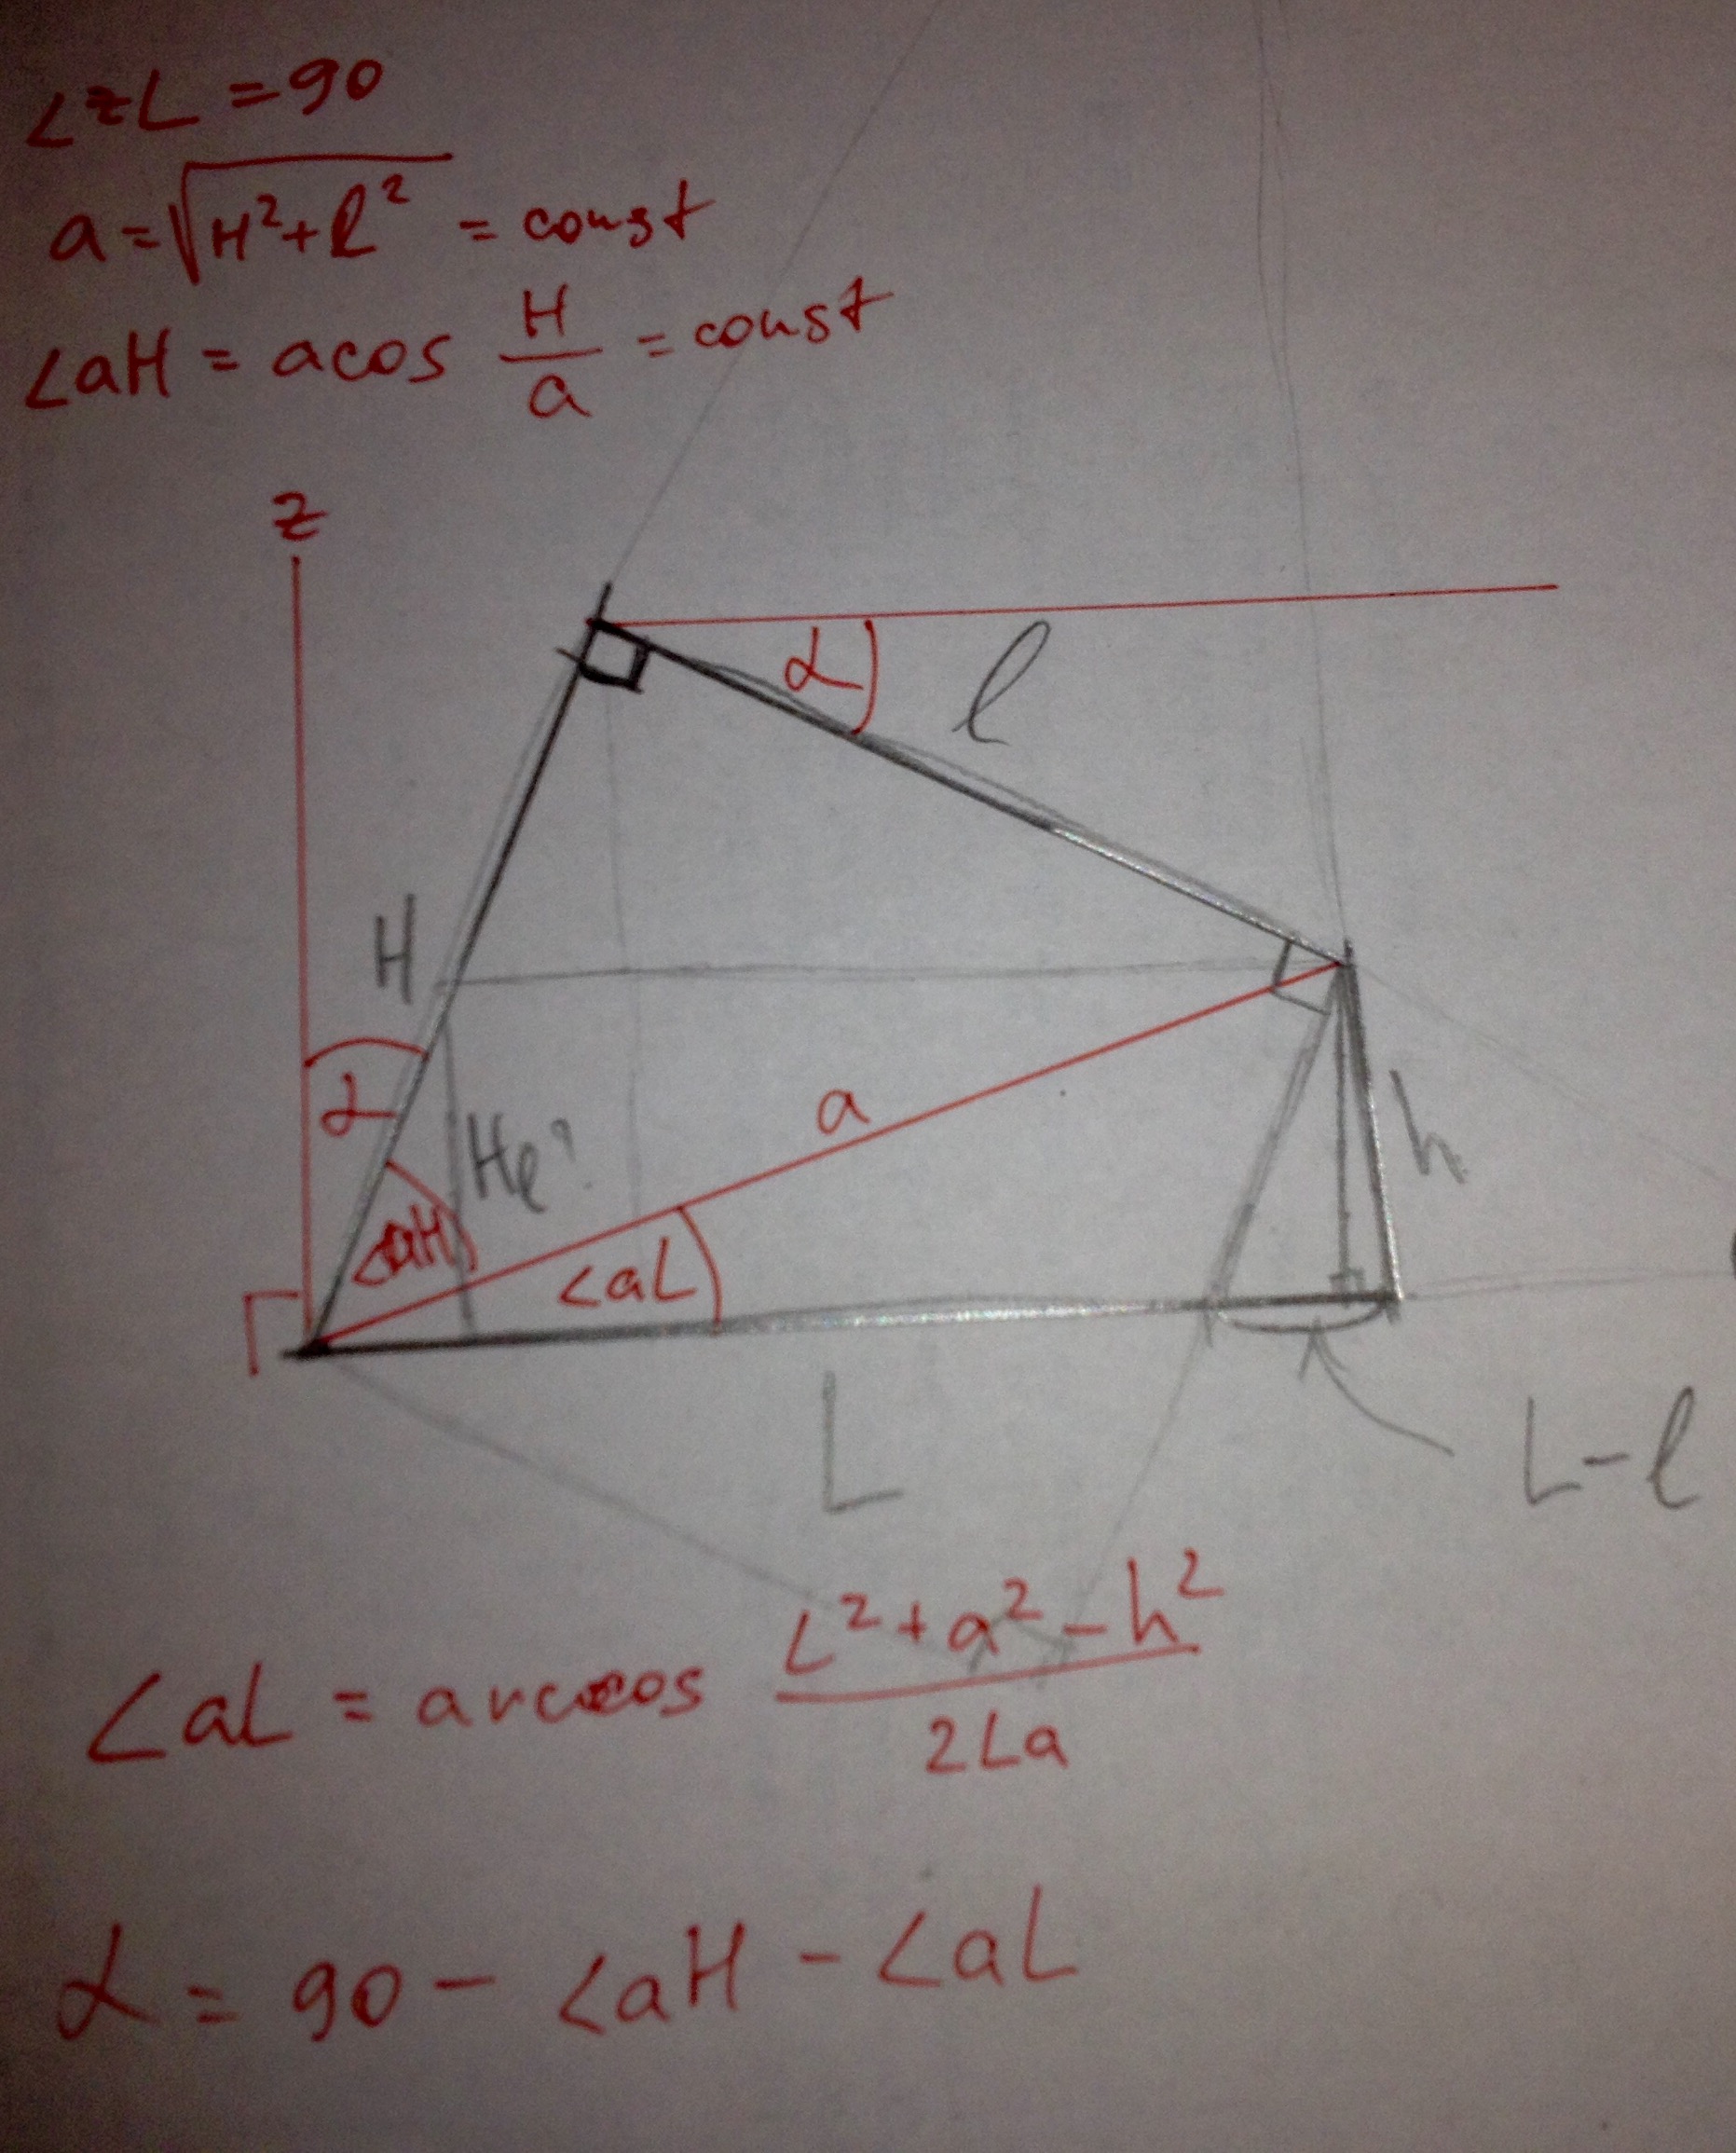 ∠zL = 90
a = √(H²+l²) = const
∠aH = acos H/a = const
z
α
l
H
α
a
He?
h
∠aH
∠aL
L
L-l
∠aL = arccos (L²+a²-h²)/(2La)
α = 90 - ∠aH - ∠aL